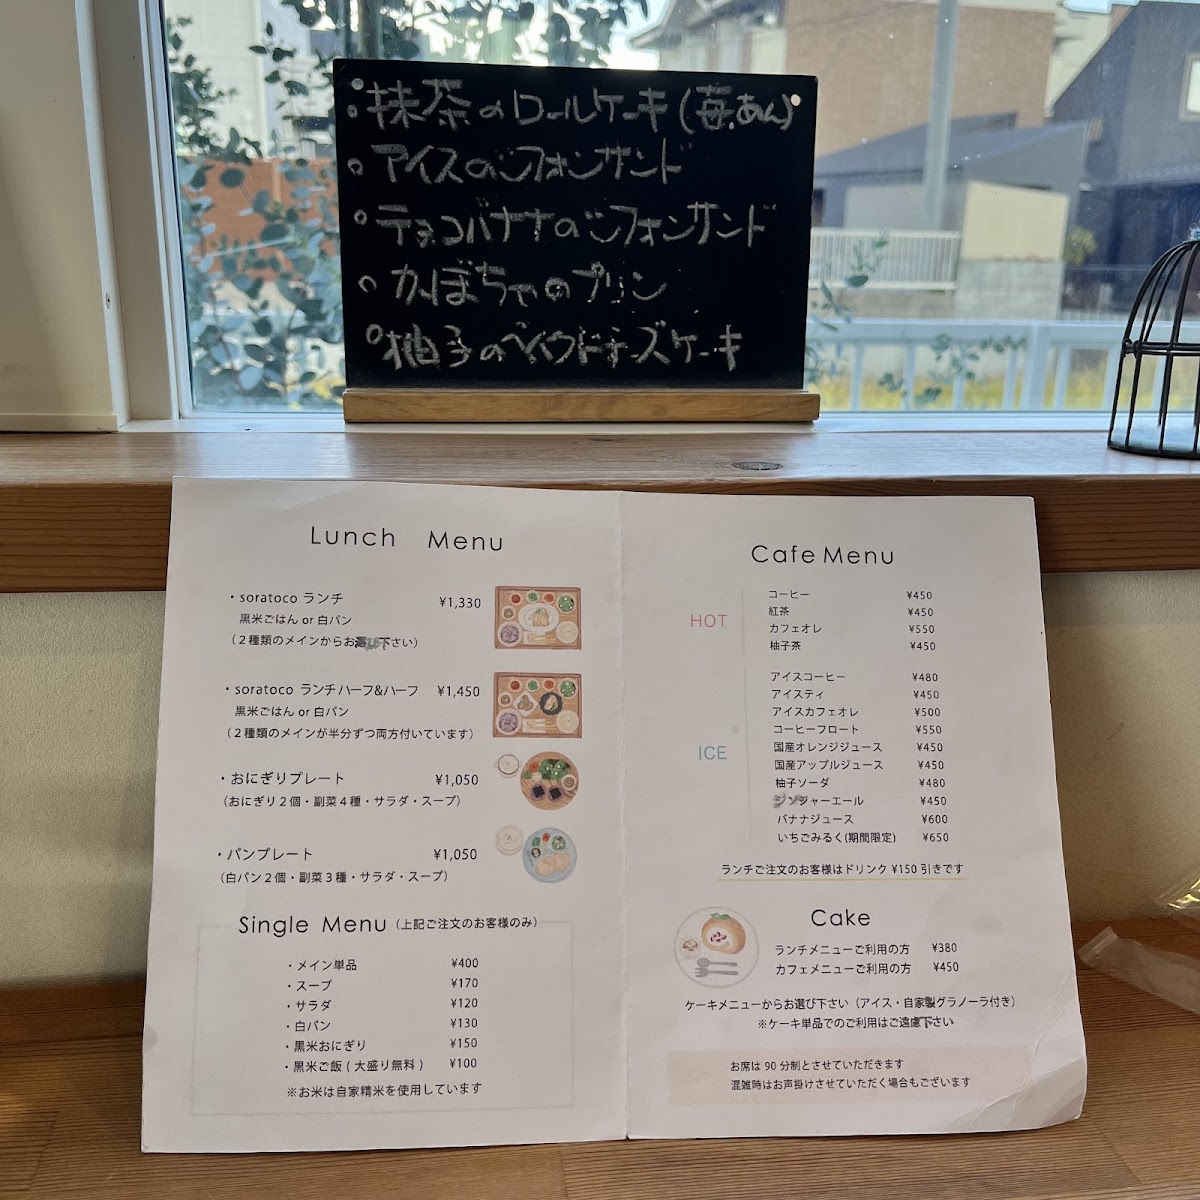 ○抹茶のロールケーキ(苺.あん)
○アイスのシフォンサンド
○チョコバナナのシフォンサンド
○かぼちゃのプリン
○柚子のベイクドチーズケーキ
Lunch Menu
・soratoco ランチ ¥1,330
黒米ごはん or 白パン
(２種類のメインからお選び下さい)
・soratoco ランチハーフ&ハーフ ¥1,450
黒米ごはん or 白パン
(２種類のメインが半分ずつ両方付いています)
・おにぎりプレート ¥1,050
(おにぎり２個・副菜４種・サラダ・スープ)
・パンプレート ¥1,050
(白パン２個・副菜３種・サラダ・スープ)
Single Menu (上記ご注文のお客様のみ)
・メイン単品 ¥400
・スープ ¥170
・サラダ ¥120
・白パン ¥130
・黒米おにぎり ¥150
・黒米ご飯 ( 大盛り無料 ) ¥100
※お米は自家精米を使用しています
Cafe Menu
HOT
コーヒー ¥450
紅茶 ¥450
カフェオレ ¥550
柚子茶 ¥450
ICE
アイスコーヒー ¥480
アイスティ ¥450
アイスカフェオレ ¥500
コーヒーフロート ¥550
国産オレンジジュース ¥450
国産アップルジュース ¥450
柚子ソーダ ¥480
ジンジャーエール ¥450
バナナジュース ¥600
いちごみるく(期間限定) ¥650
ランチご注文のお客様はドリンク ¥150 引きです
Cake
ランチメニューご利用の方 ¥380
カフェメニューご利用の方 ¥450
ケーキメニューからお選び下さい (アイス・自家製グラノーラ付き)
※ケーキ単品でのご利用はご遠慮下さい
お席は 90 分制とさせていただきます
混雑時はお声掛けさせていただく場合もございます